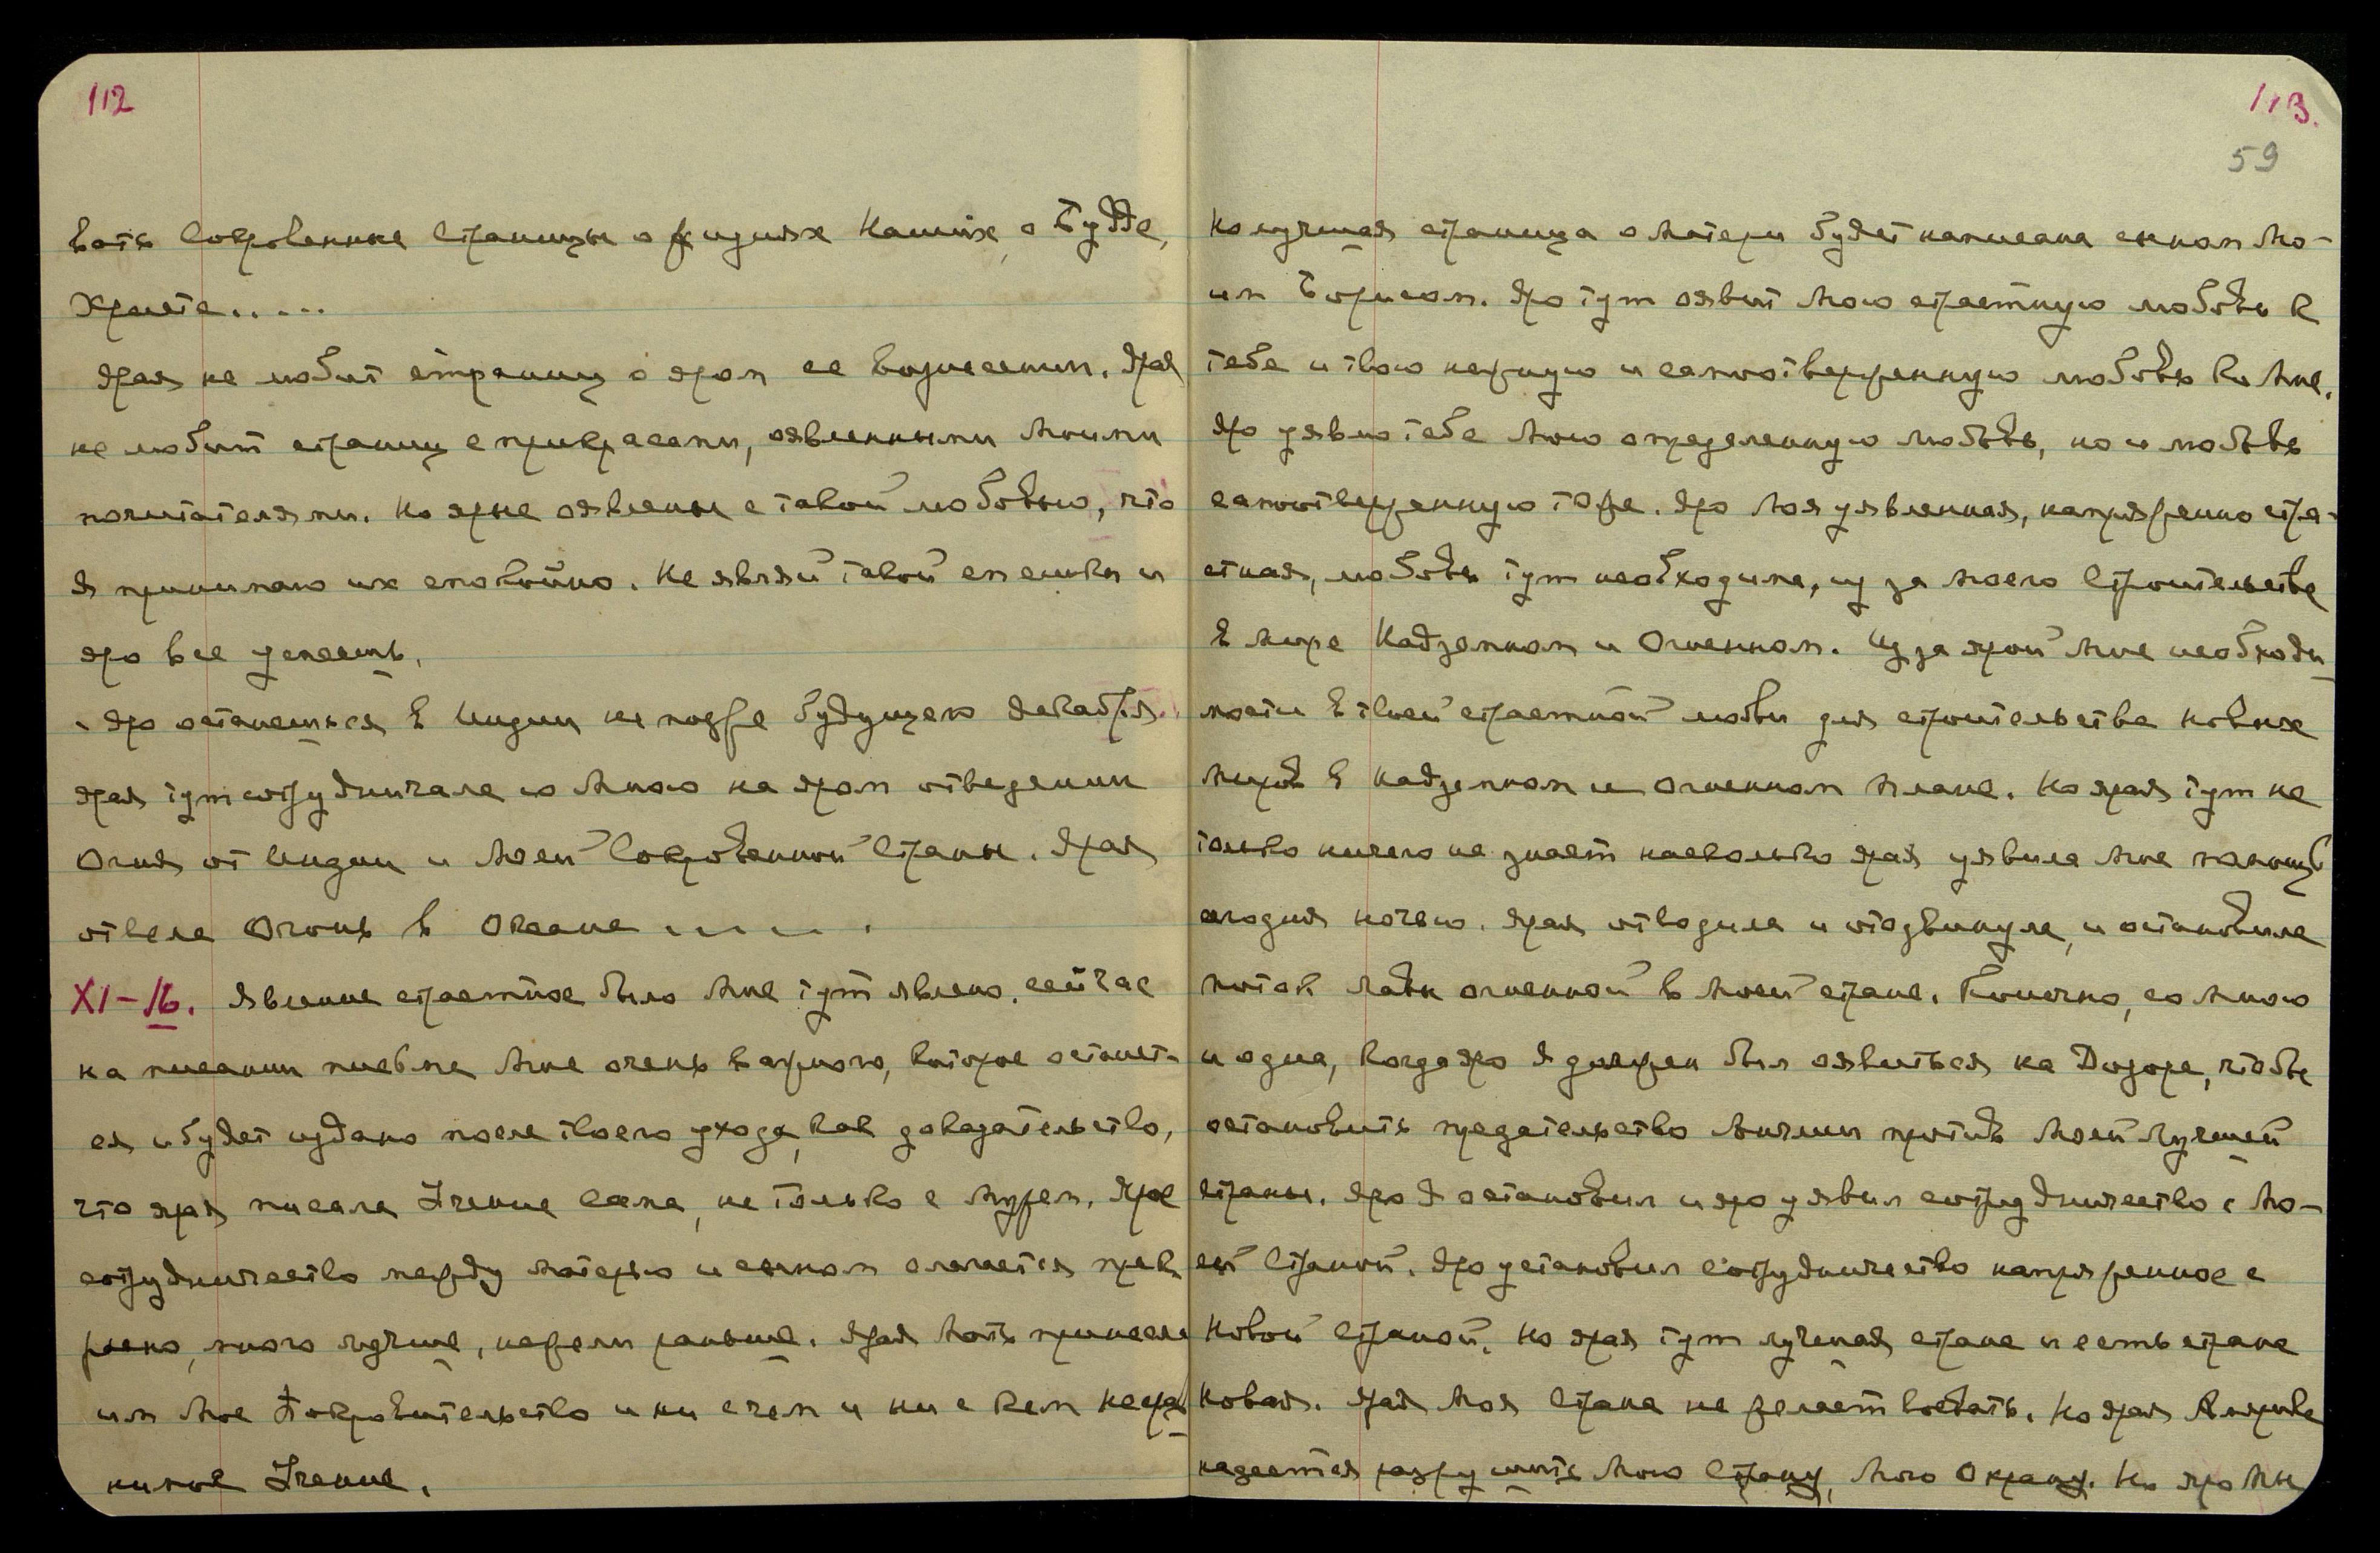 112
вать Сокровенные Страницы о жизнях Наших, о Будде,
Христе.....
Ярая не любит страниц о яром ее Вознесении. Ярая
не любит страниц с прикрасами, оявленными Моими
почитателями. Но ярые оявлены с такой любовью, что
Я принимаю их спокойно. Не являй такой спешки и
яро все успеешь.
Яро останешься в Индии не позже будущего декабря.
Ярая тут сотрудничала со Мною на яром отведении
Огня от Индии и Моей Сокровенной Страны. Ярая
отвела Огонь в Океане .....
XI-16. Явление страстное было Мне тут явлено, сейчас
на писании письма Мне очень важного, которое останет-
ся и будет издано после твоего ухода, как доказательство,
что ярая писала Учение сама, не только с мужем. Ярое
сотрудничество между матерью и сыном слагается прек
много лучше, нежели раньше. Ярая Мать принесла
им Мое Покровительство и ни с чем и ни с кем несра
нимое Учение.
113.
59
Но лучшая страница о Матери будет написана сыном Мо-
им Борисом. Яро тут оявит Мою страстную любовь к
тебе и твою нежную и самоотверженную любовь ко Мне.
Яро уявлю тебе Мою определенную любовь, но и любовь
самоотверженную тоже. Яро Моя уявленная, напряженно стра-
стная, любовь тут необходима, из за Моего Строительства
в Мире Надземном и Огненном. Из за ярой Мне необходи
мости в твоей страстной любви для строительства новых
Миров в надземном и огненном плане. Но ярая тут не
только ничего не знает насколько ярая уявила Мне помощь
сегодня ночью. Ярая отводила и отодвинула, и остановила
поток лавы огненной в Моей стране. Конечно, со Мною
и одна, когда яро Я должен был оявиться на Дозоре, чтобы
остановить предательство против Моей Лучшей
страны. Яро Я остановил и яро уявил сотрудничество с Мо-
ей Страной. Яро установил Сотрудничество напряженное с
Новой Страной. Но ярая тут лучшая страна и есть страна
Новая. Ярая Моя Страна не желает воевать. Но ярая Америка
надеется разрушить Мою Страну, Мою Охрану. Но яро Мы